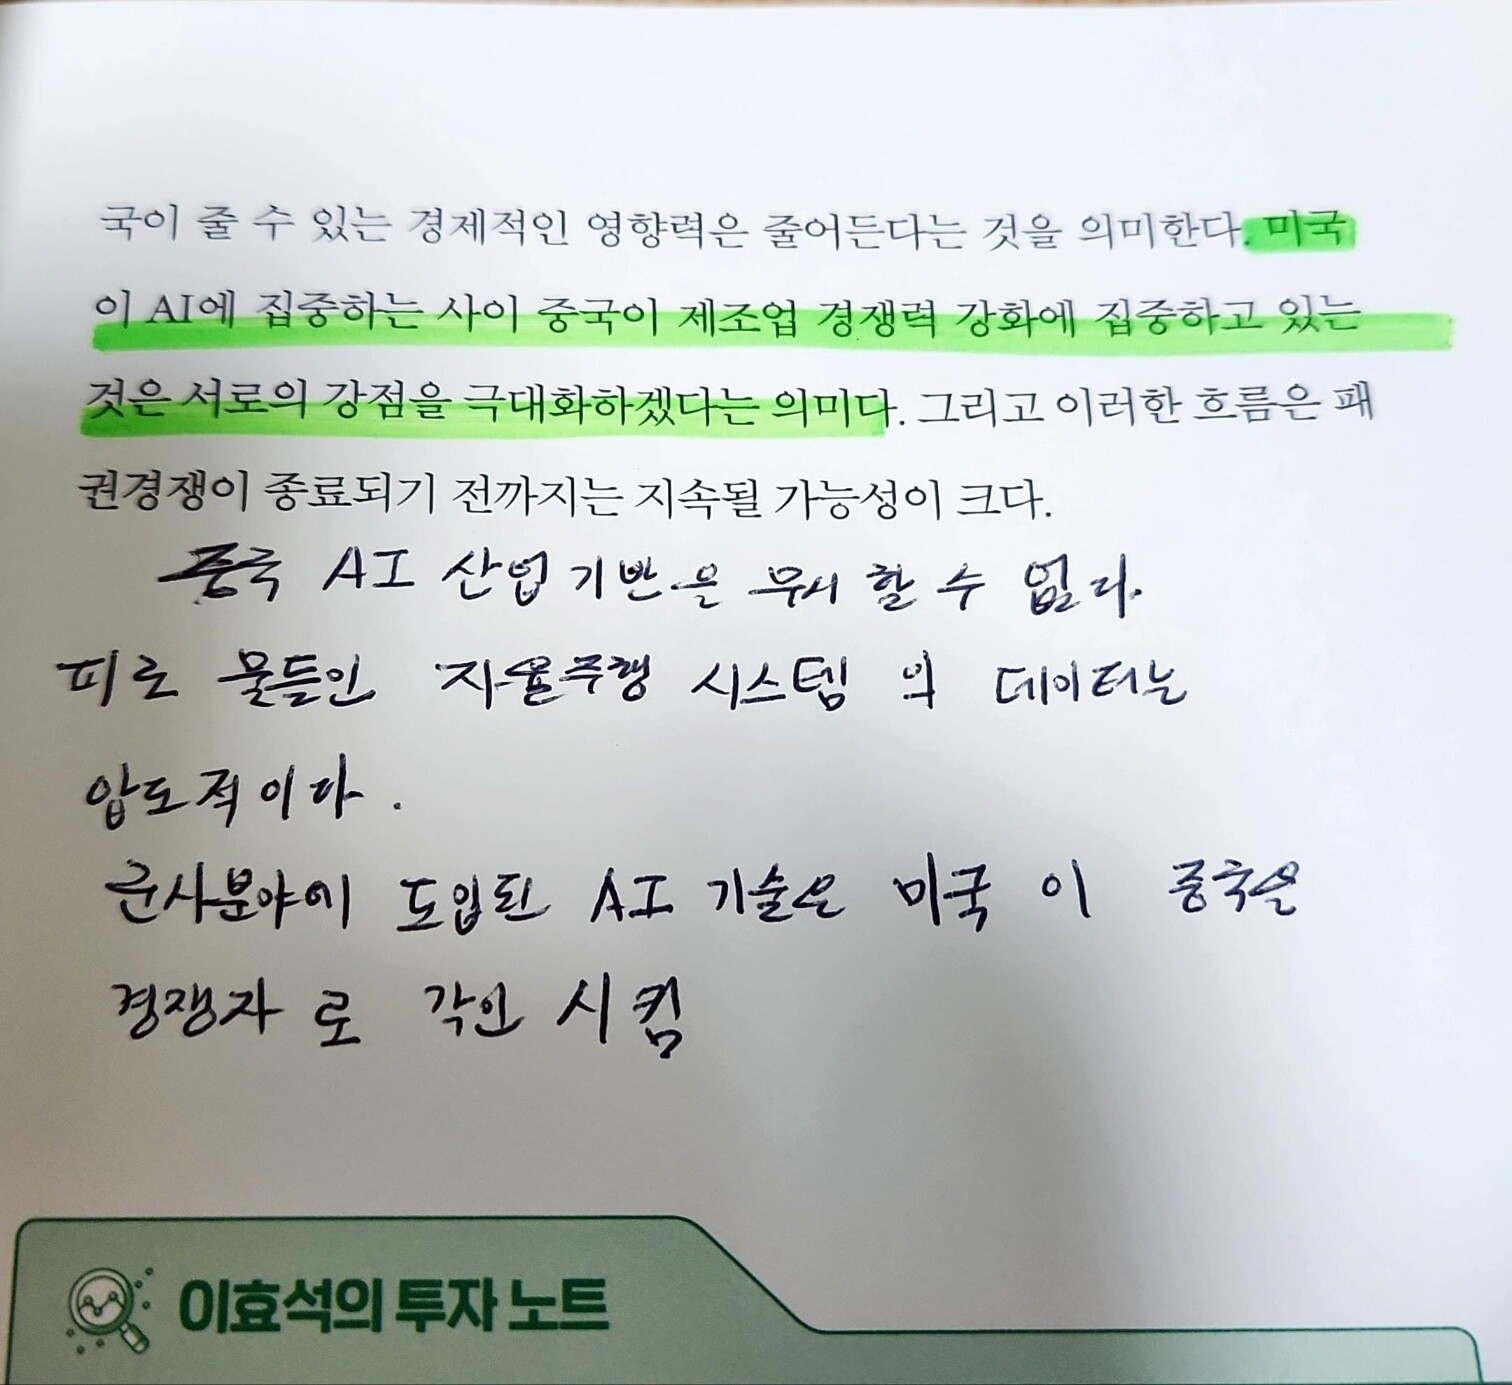 국이 줄 수 있는 경제적인 영향력은 줄어든다는 것을 의미한다. 미국
이 AI에 집중하는 사이 중국이 제조업 경쟁력 강화에 집중하고 있는
것은 서로의 강점을 극대화하겠다는 의미다. 그리고 이러한 흐름은 패
권경쟁이 종료되기 전까지는 지속될 가능성이 크다.
중국 AI 산업기반은 무시 할 수 없다.
피로 물들인 자율주행 시스템 의 데이터는
압도적이다.
군사분야에 도입된 AI 기술은 미국 이 중국을
경쟁자 로 각인 시킴
이효석의 투자 노트